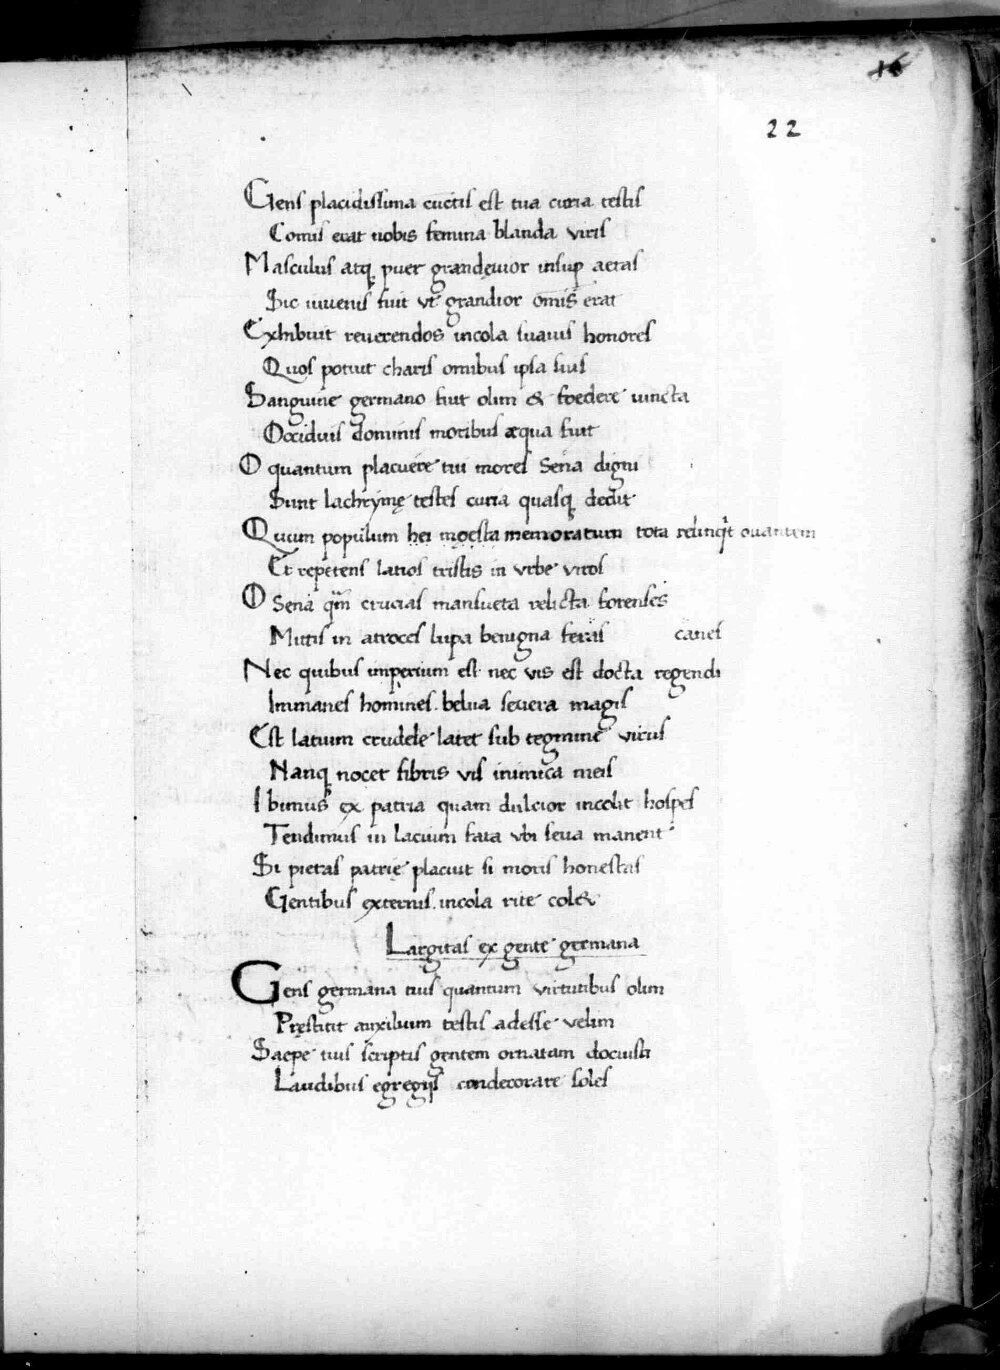 16
22
Gens placidissima cūctis est tua curia testis
Comis erat nobis femina blanda viris
Masculus atq puer grandęvior insup aetas
Sic iuvenis fuit vt grandior omīs erat
Exhibuit reverendos incola suavis honores
Quos potuit charis omnibus ipsa suis
Sanguine germano fuit olim & foedere iuncta
Occiduis dominis moribus æqua fuit
O quantum placuere tui mores Sena digni
Sunt lachrymę testes curia quasq dedit
Quum populum hei moesta memoratum tota relinqt ouantem
Et repetens latios tristis in vrbe viros
O Sena qm crucias mansueta relicta forenses
Mittis in atroces lupa benigna feras canes
Nec quibus imperium est nec vis est docta regendi
Immanes homines. belua severa magis
Est latium crudele latet sub tegmine virus
Nanq nocet fibris vis inimica meis
Ibimus ex patria quam dulcior incolit hospes
Tendimus in lacium fata vbi seva manent
Si pietas patrię placuit si moris honestas
Gentibus externis. incola rite col&
Largitas ex gente germana
Gens germana tuis quantum virtutibus olim
Pręstitit auxilium testis adesse velim
Saepe tuis scriptis gentem ornatam docuisti
Laudibus egregijs condecorare soles